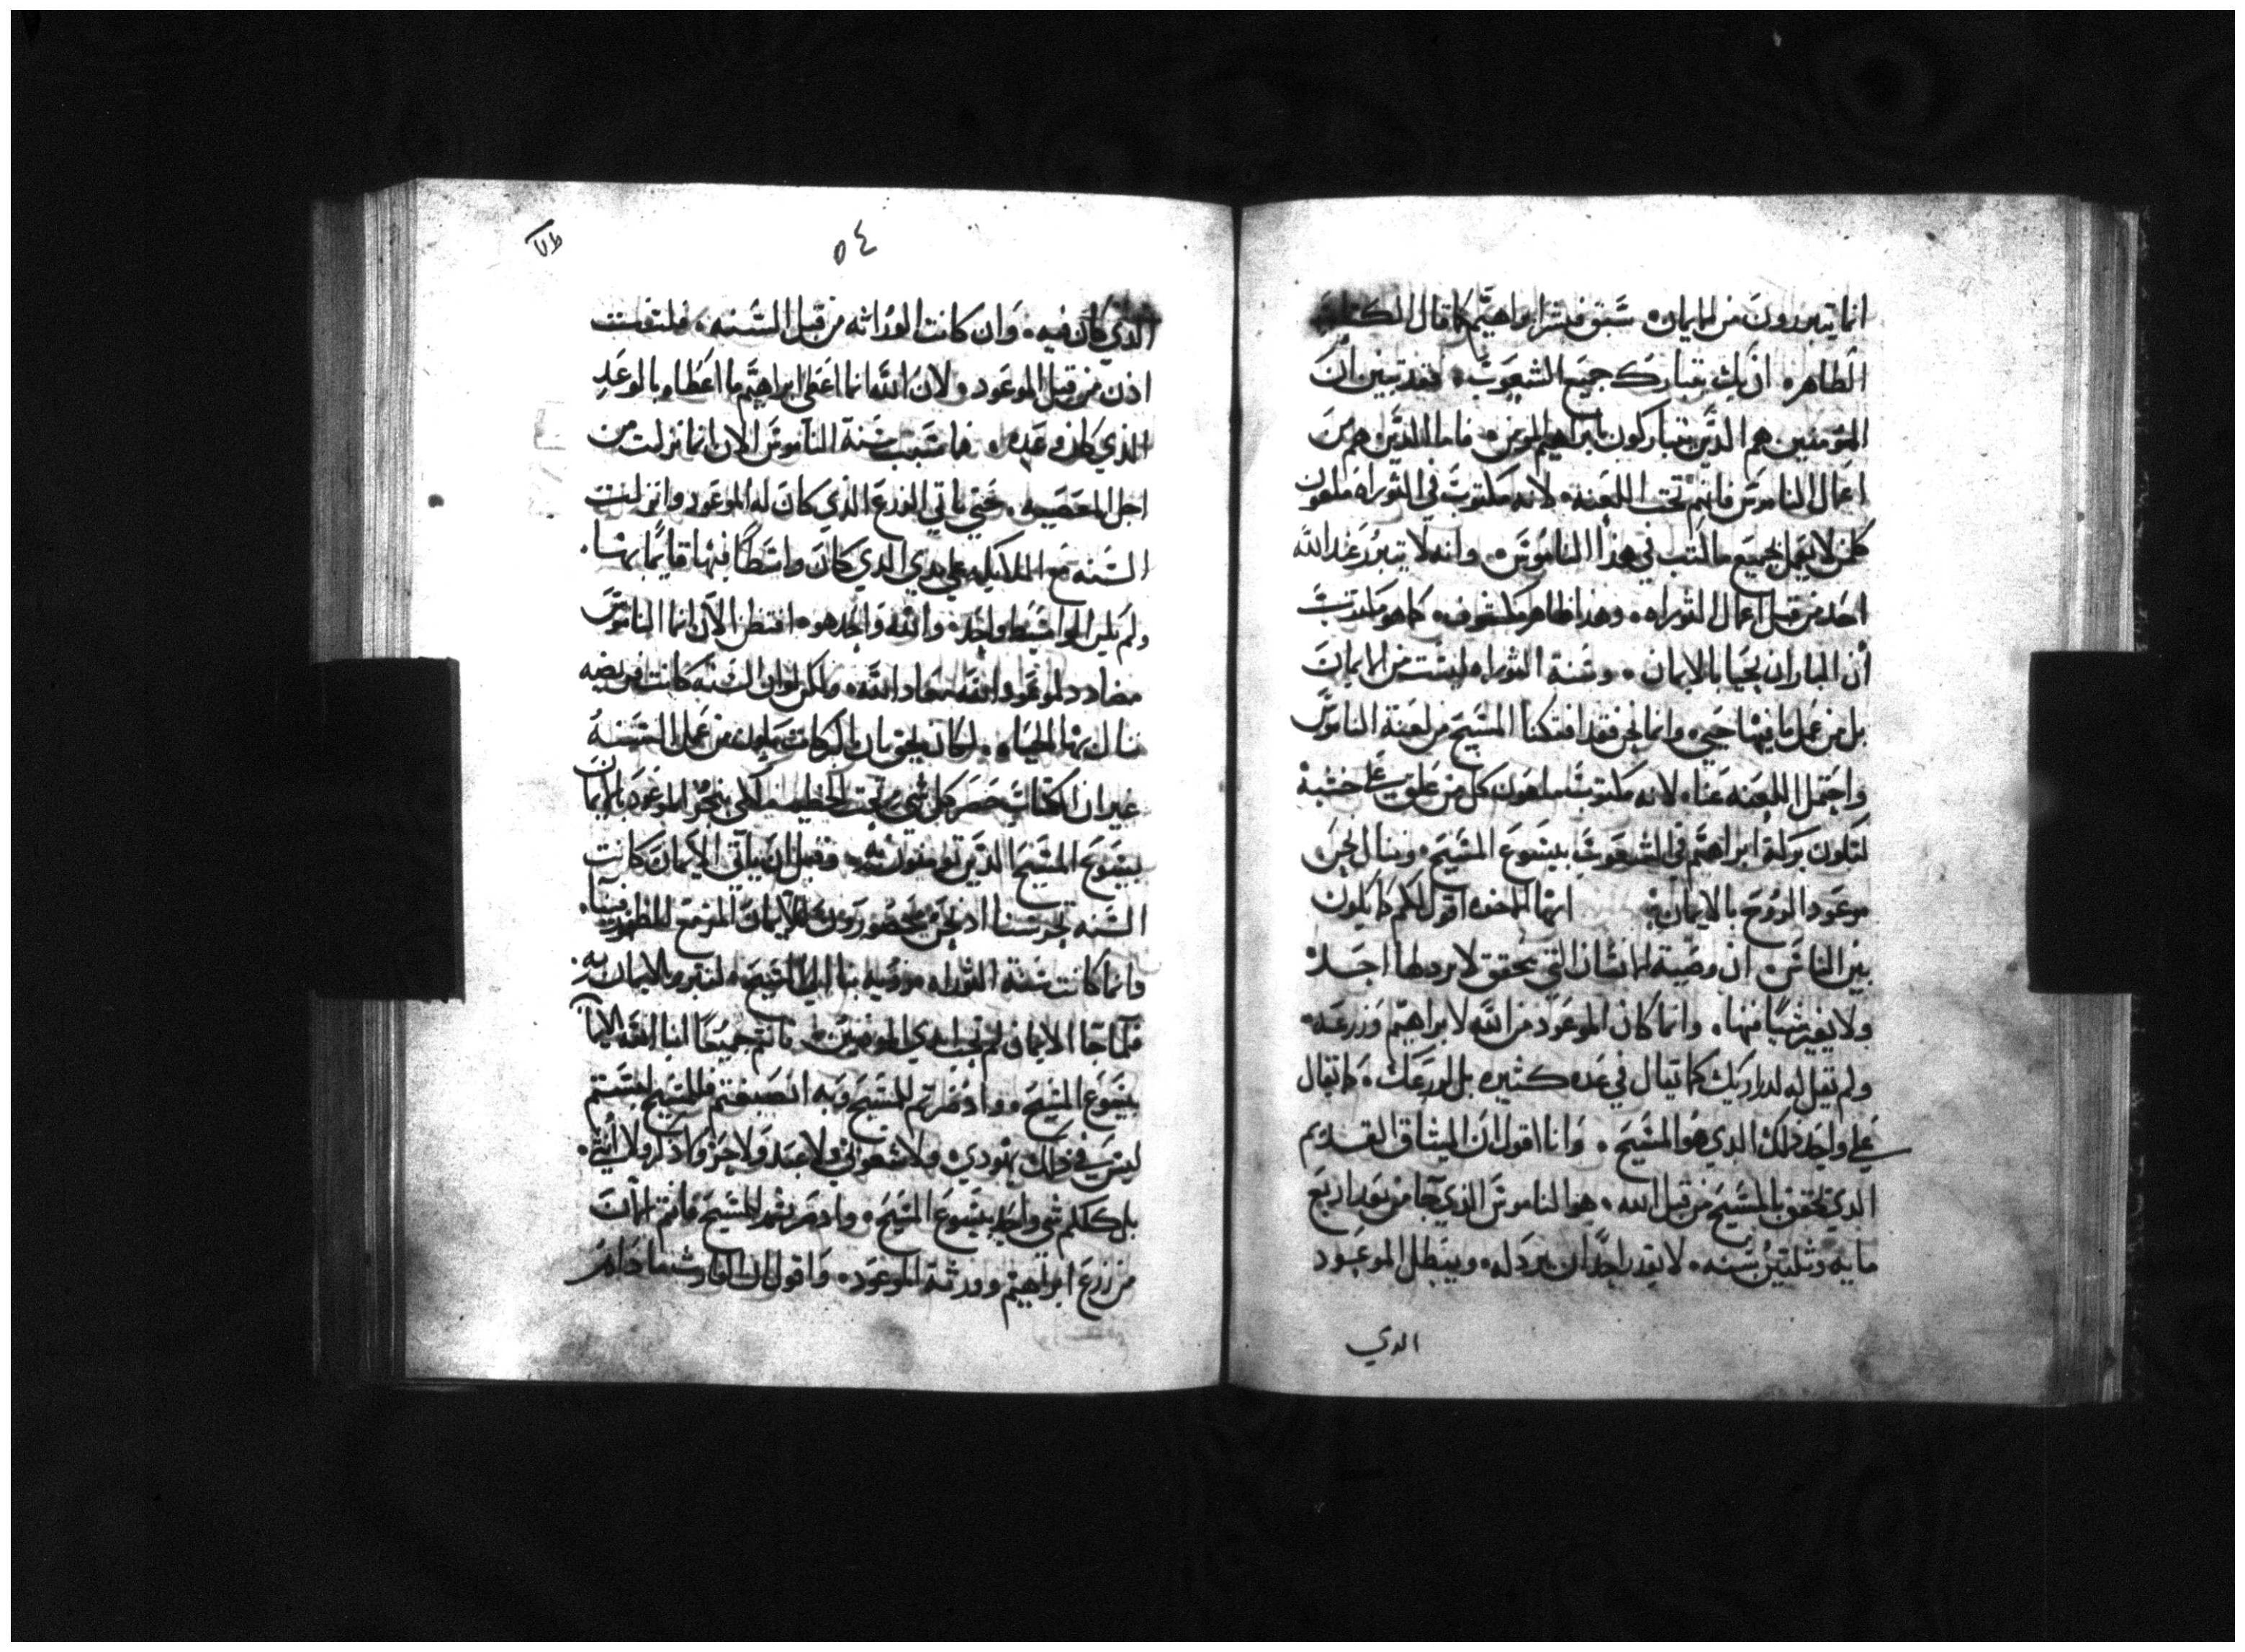 انما يتبررون من الايمان. سبق فبشر ابراهيم كما قال الكتاب
الطاهر. ان بك يتبارك جميع الشعوب. فقد تبين ان
المومنين هم الدين يتباركون بابراهيم المومن. فاما الدين هم من
اعمال الناموس فانهم تحت اللعنه. لانه مكتوب في التوراه ملعون
كلمن لا يعمل بجميع ما كتب في هذا الناموس. وانه لا يتبرر عند الله
احد من قبل اعمال التوراه. وهدا ظاهر مكشوف. كما هو مكتوب
أن البار ان يحيا بالايمان. وسنة التوراه ليست من الايمان
بل من عمل ما فيها حيي. وانما نحن فقد افتكنا المسيح من لعنة الناموس
واحتمل اللعنه عنا. لانه مكتوب ملعون كل من علق على خشبة
لتكون بركة ابراهيم في الشعوب بيسوع المسيح. وننال نحن
موعود الروح بالايمان. ايها الاخوه اقول لكم كما يكون
بين الناس. ان وصية الانسان التي تحقق لا يردلها احد
ولا يغير شيا منها. وانما كان الموعود من الله لابراهيم وزرعه.
ولم يقيل له لدراريك كما تيال في عده كثيره بل لزرعك. كما يقال
على واحد ذلك الدي هو المسيح. وانا اقول ان الميثاق القديم
الدي تحقق بالمسيح من قبل الله. هو الناموس الذي جا من بعد اربع
مايه وثلثين سنه. لا يقدر احدا ان يردله. ويبطل الموعود
الدي
٥٤
الدي كان فيه. وان كانت الوراثه من قبل السنه. فليست
اذن من قبل الموعود ولان الله انما اعطى ابراهيم ما اعطاه بالوعد
الذي كان وعده. فما سبب سنة الناموس الان انما نزلت من
اجل المعصيه. حتي ياتي الزرع الذي كان له الموعود وانزلت
السنه مع الملايكه علي يدي الدي كان واسطا فيها قايما بها.
ولم يكن الواسيط واحد. والله واحد هو. افتظن الان انما الناموس
مضادد لموعود الله معاد الله. ولكن لو ان السنه كانت فريضه
ننال بها الحياه. لكان بحق بان البر كان يكون من عمل السنه
غير ان الكتاب حصر كل شي تحت الخطيه لكي ينجز الموعود بالايمان
بيسوع المسيح الدين يومنون به. وقبل ان ياتي الايمان كانت
السنه تحرسنا اد نحن محصورون للايمان المزمع للظهور فينا.
وانما كانت سنة التوراه موديه بنا الي المسيح. لنتبرر بالايمان به.
فلما جا الايمان لم نحت ايدي المودبين. فانتم جميعا ابنا الله بالايمان
بيسوع المسيح. واد صرتم للمسيح وبه انصبغتم فالمسيح لبستم
ليس في ذلك يهودي. ولا شعوبي ولا عبد ولا حر ولا ذكر ولا انثي.
بل كلكم شي واحد بيسوع المسيح. واد صرتم للمسيح فانتم الان
من زرع ابراهيم وورثة الموعود. واقول ان الوارث ما دام